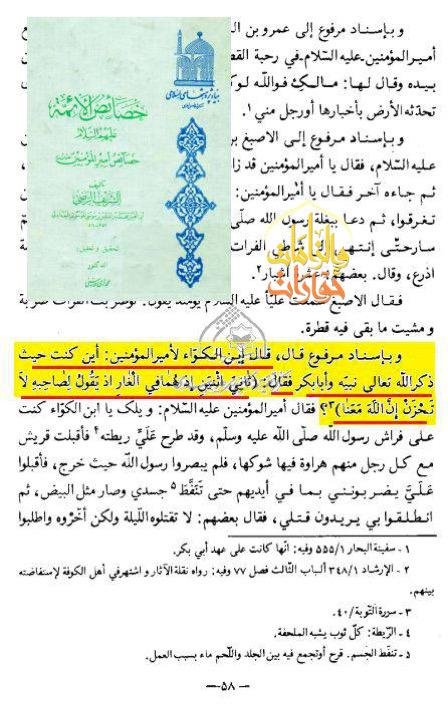 و بإسناد مرفوع إلى عمرو بن
أميرالمؤمنين ـ عليه السلام ـ في رحبة
بيده وقال لها: مـالـكِ فـواللّه لـو
تحدّثه الأرض بأخبارها أورجل مني ١.
و بـإسنـاد مرفوع إلى الاصبغ بـ
عليه السّلام، فقال يا أميرالمؤمنين قد زا
ثـم جاءه آخـر فـقـال يا أميرالمؤمنين:
تغـرقـوا، ثـم دعـا ببغلة رسول الله صلّى
سارحتّـى إنـتهـى
الفرات
اذرع، وقال. بعضهم:
٢.
فـقـال الاصبغ
و مشيت ما بقى فيه قطرة.
و بإسناد مرفوع قـال، قـال إبـن الـكـوّاء لأميرالمؤمنين: أين كنت حيث
ذكرالله تعالى نبيّه وأبابكر فقال: (ثاني اثنين إذ هُمافي الْغارِ اذ يَقُولُ لِصاحِبِهِ لاَ
تَـحْزَنْ إنَّ اللّهَ مَعَنا)٣؟ فقال أميرالمؤمنين عليه السلام: و يلك يا ابن الكوّاء كنت
على فراش رسول الله صلّى الله عليه وسلّم، وقد طرح عَلَيَّ ريطته٤ فأقبلت قريش
مع كـل رجـل منهم هراوة فيها شوكها، فلم يبصروا رسول الله حيث خرج، فأقبلوا
عَـلَـيَّ يضـربـونـنـي بـمـا فـي أيديهم حتى تَنَفَّطَ٥ جسدي وصار مثل البيض، ثم
انـطـلـقـوا بي يـريـدون قـتلي، فقال بعضهم: لا تقتلوه اللّيلة ولكن أخّروه واطلبوا
١ ـ سفينة البحار ٥٥٥/١ وفيه: انّها كانت على عهد أبي بكر.
٢ ـ الإرشاد ٣٤٨/١ ألباب الثالث فصل ٧٧ وفيه: رواه نقلة الآثار و اشتهرفي أهل الكوفة لإستفاضته
بينهم.
٣ ـ سورة التّوبة/٤٠.
٤ ـ الرّيطة: كلّ ثوب يشبه الملحفة.
٥ ـ تنفط الجسم. قرح أوتجمع فيه بين الجلد واللّحم ماء بسبب العمل.
ـ ٥٨ ـ
خصائص الأئمة
عليهم السلام
خصائص أمير المؤمنين
تأليف
الشريف الرضي
تحقيق و تعليق:
الدكتور
حوارات